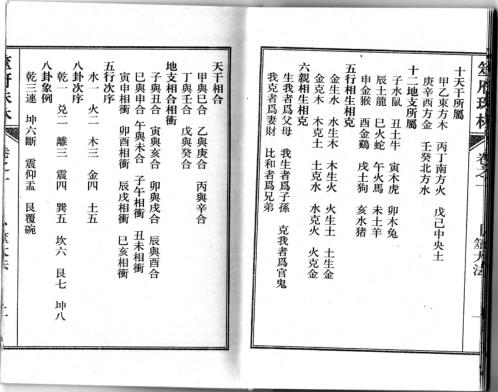 卷之一
十天干所屬
甲乙東方木　丙丁南方火　戊己中央土
庚辛西方金　壬癸北方水
十二地支所屬
子水鼠　丑土牛　寅木虎　卯木兔
辰土龍　巳火蛇　午火馬　未土羊
申金猴　酉金鷄　戌土狗　亥水猪
五行相生相克
金生水　水生木　木生火　火生土　土生金
金克木　木克土　土克水　水克火　火克金
六親相生相克
生我者爲父母　我生者爲子孫　克我者爲官鬼
我克者爲妻財　比和者爲兄弟
天干相合
甲與巳合　乙與庚合　丙與辛合
丁與壬合　戊與癸合
地支相合相衝
子與丑合　寅與亥合　卯與戌合　辰與酉合
巳與申合　午與未合　子午相衝　丑未相衝
寅申相衝　卯酉相衝　辰戌相衝　巳亥相衝
五行次序
水一　火二　木三　金四　土五
八卦次序
乾一　兌二　離三　震四　巽五　坎六　艮七　坤八
八卦象例
乾三連　坤六斷　震仰盂　艮覆碗